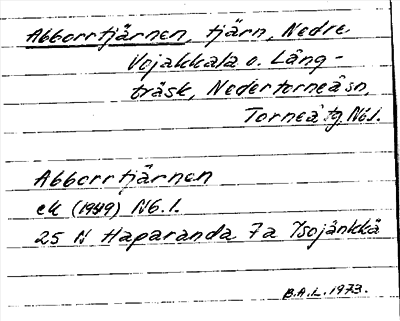 Abborrtjärnen, tjärn, Nedre
Vojakkala o. Lång-
träsk, Nedertorneå sn,
Torneå tg, Nb l.
Abborrtjärnen
ek (1949) Nb. l.
25 N Haparanda 7a Isojänkkä
B.A.L. 1973.